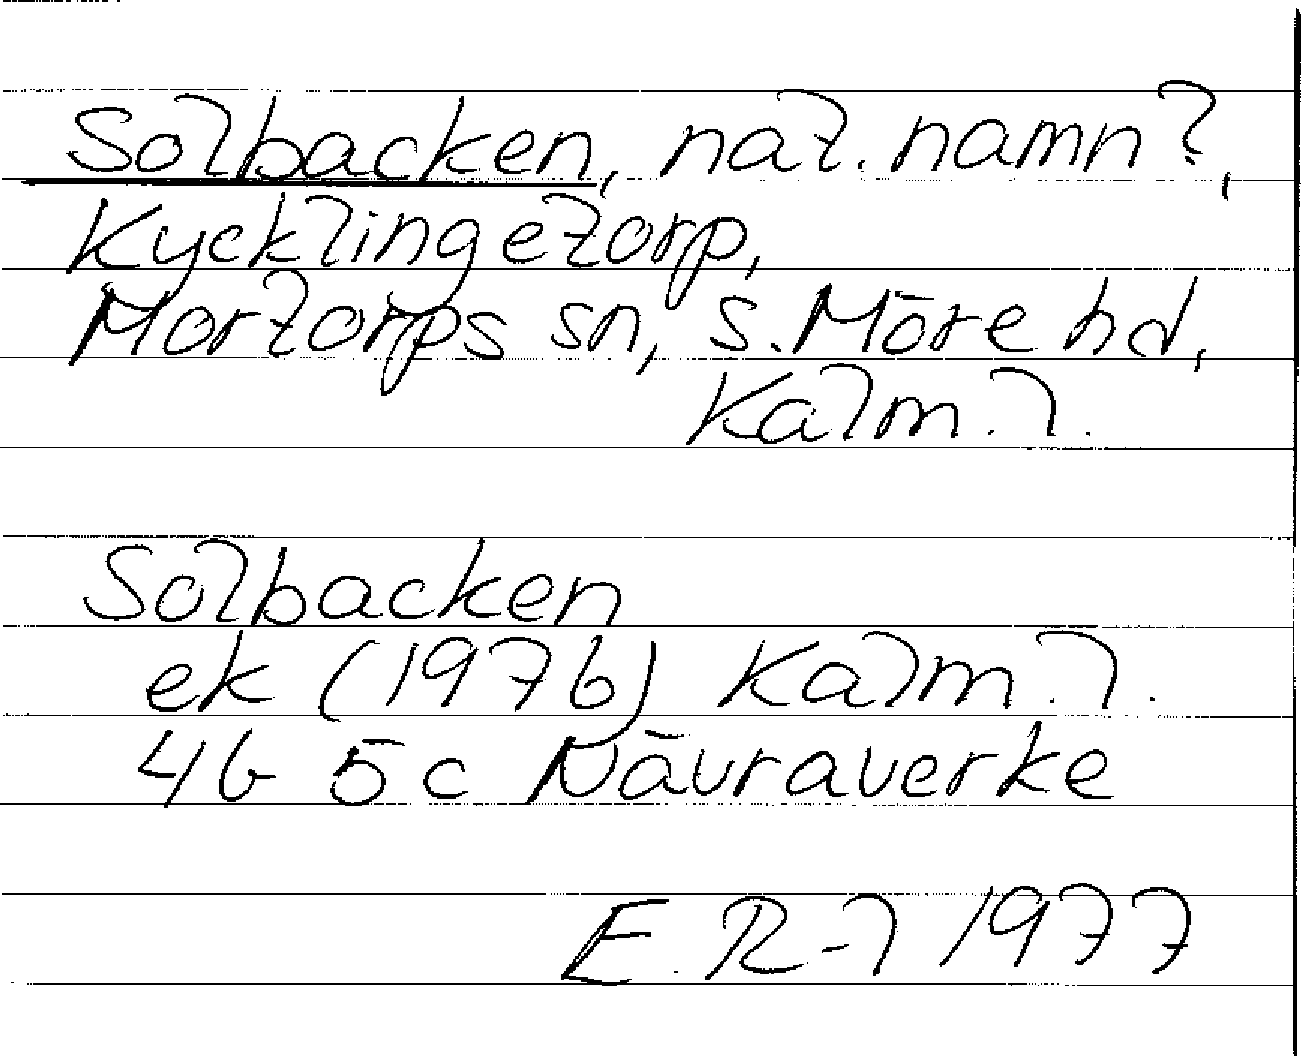 Solbacken, nat. namn?,
Kycklingetorp,
Mortorps sn, S. Möre hd,
Kalm. l.
Solbacken
ek (1976) Kalm. l.
4G 5c Nävraverke
E. R-l 1977